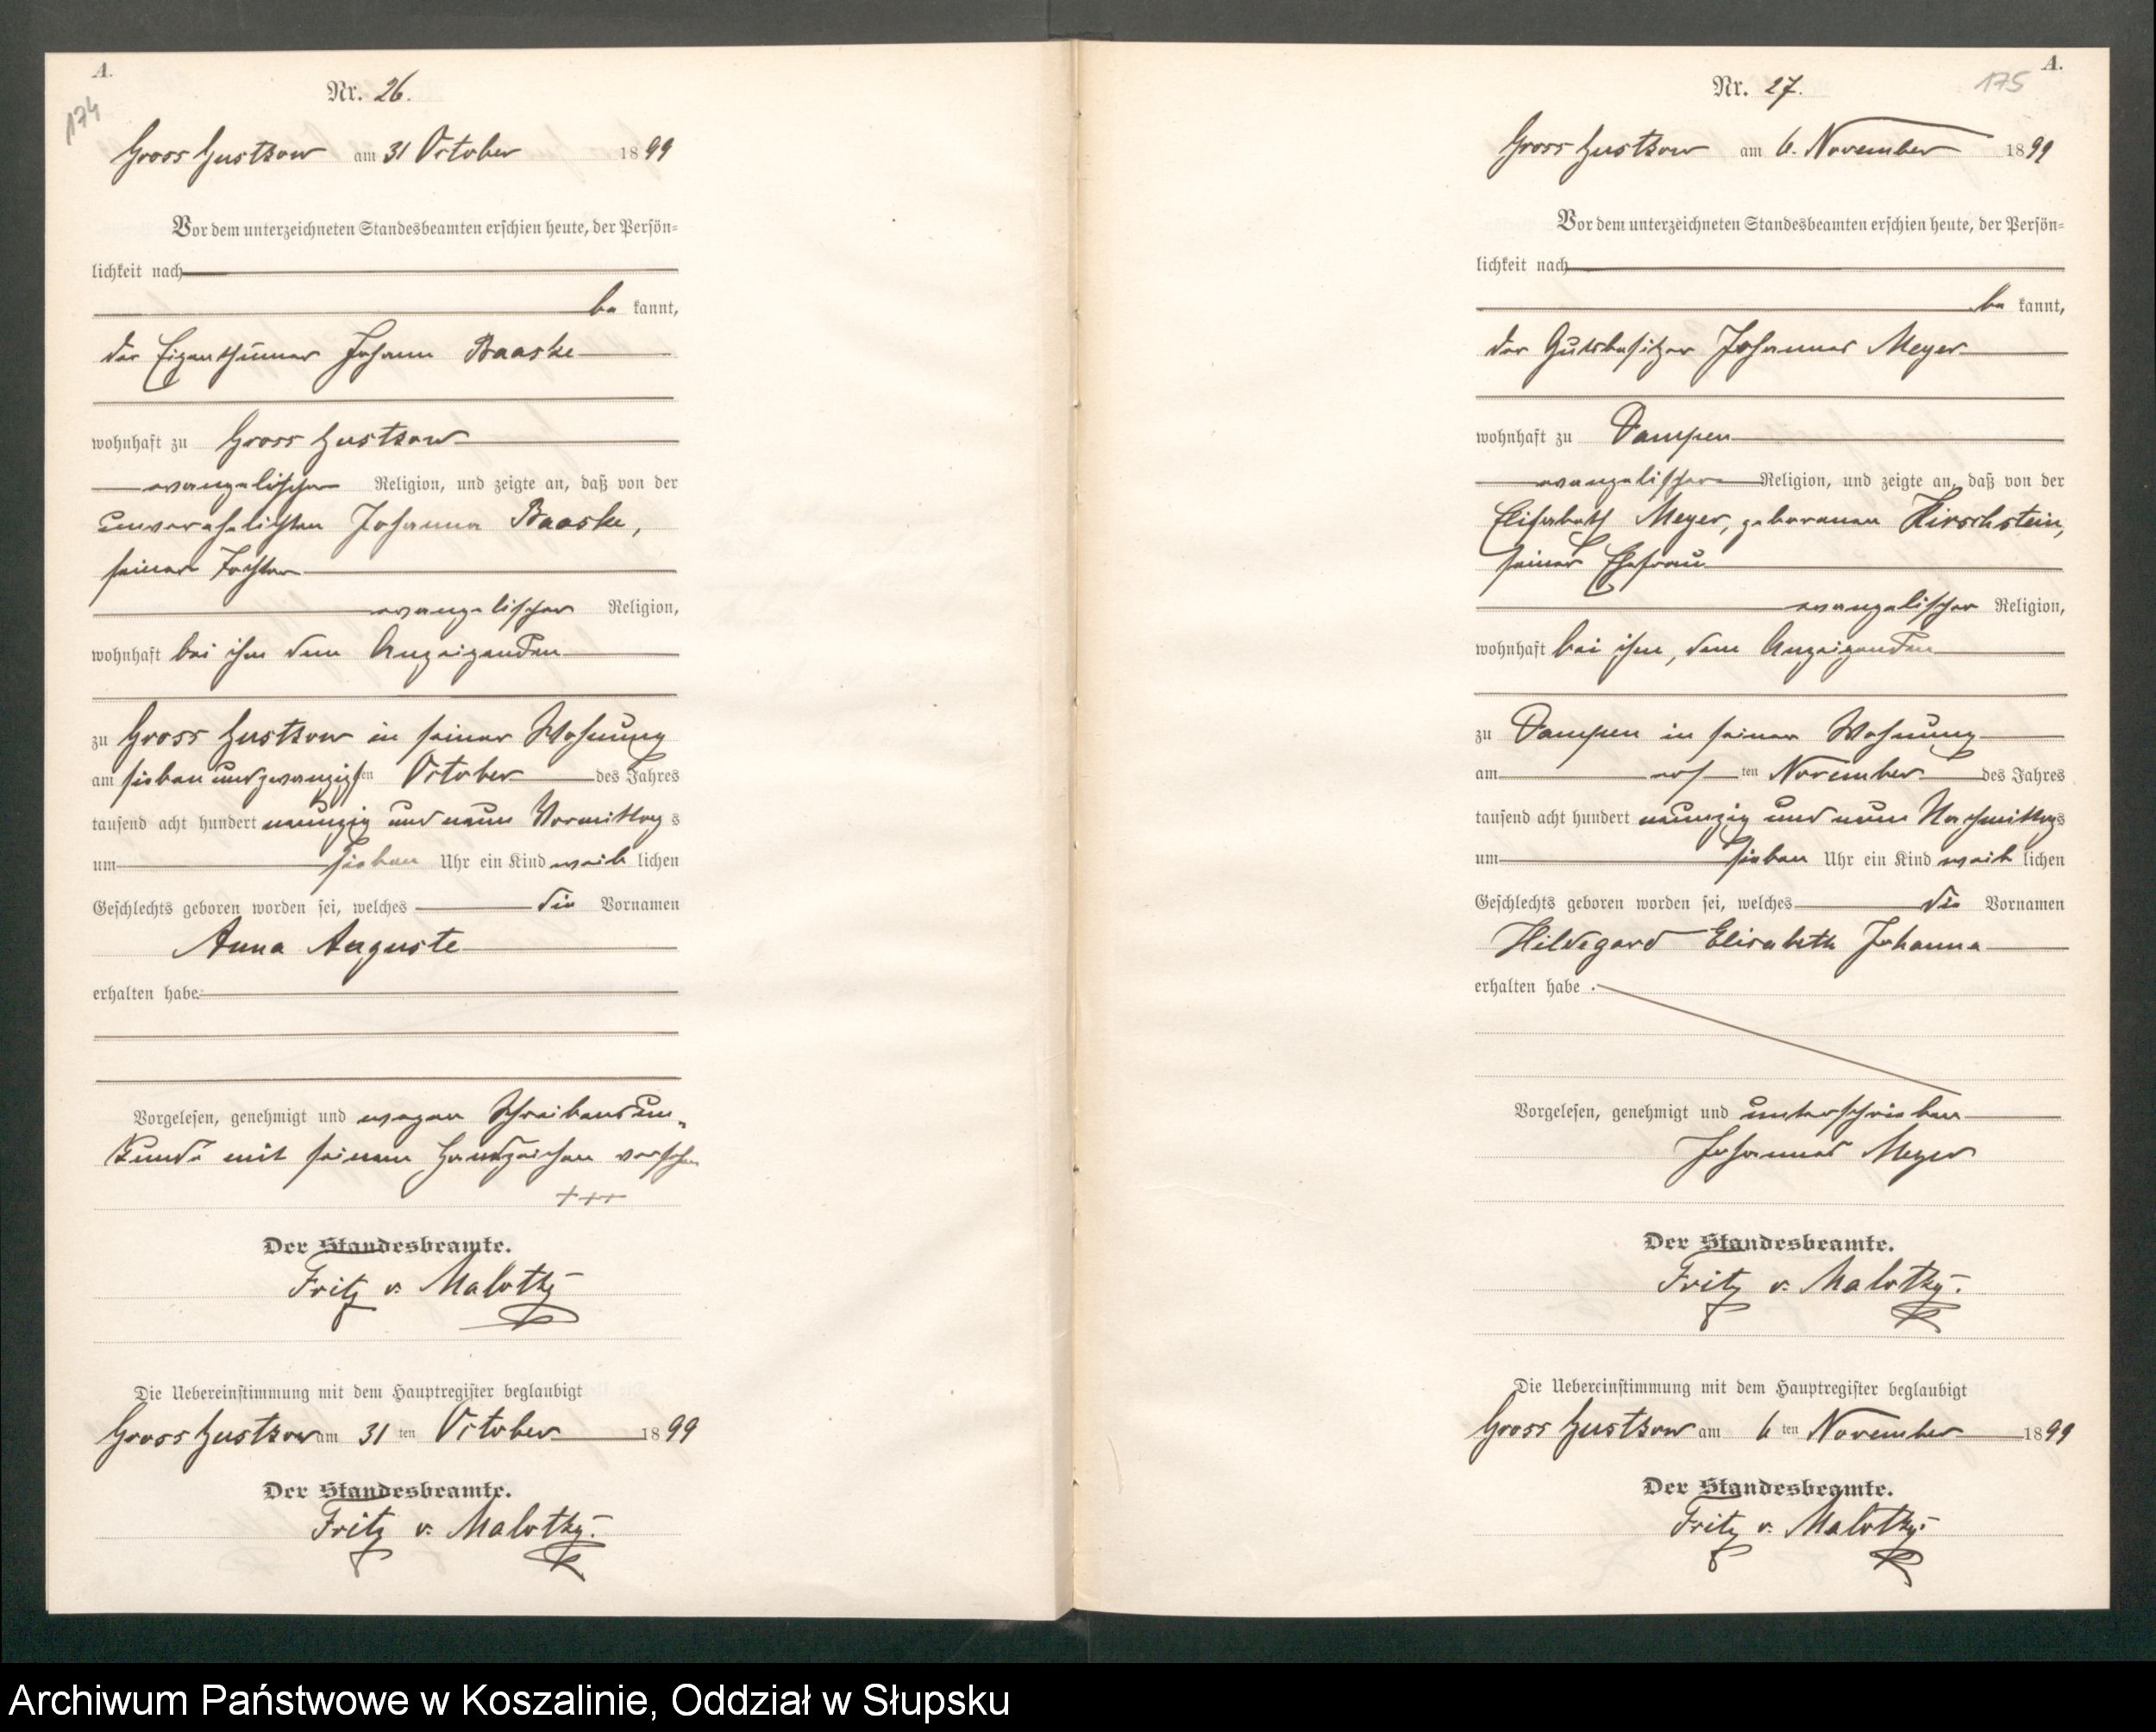 A.
174
Nr. 26.
Gross Gustkow am 31 October 1899
Vor dem unterzeichneten Standesbeamten erschien heute, der Persön-
lichkeit nach
be kannt,
der Eigenthümer Johann Baaske
wohnhaft zu Gross Gustkow
evangelischer Religion, und zeigte an, daß von der
unverehelichten Johanna Baaske,
seiner Tochter
evangelischer Religion,
wohnhaft bei ihm dem Anzeigenden
zu Gross Gustkow in seiner Wohnung
am sieben und zwanzigsten October des Jahres
tausend acht hundert neunzig und neun Vormittags
um sieben Uhr ein Kind weiblichen
Geschlechts geboren worden sei, welches die Vornamen
Anna Auguste
erhalten habe.
Vorgelesen, genehmigt und wegen Schreibensun-
kunde mit seinem Handzeichen versehen
+++
Der Standesbeamte.
Fritz v. Malotky
Die Uebereinstimmung mit dem Hauptregister beglaubigt
Gross Gustkow am 31 ten October 1899
Der Standesbeamte.
Fritz v. Malotky.
A.
175
Nr. 27.
Gross Gustkow am 6. November 1899
Vor dem unterzeichneten Standesbeamten erschien heute, der Persön-
lichkeit nach
be kannt,
der Gutsbesitzer Johannes Meyer
wohnhaft zu Dampen
evangelischer Religion, und zeigte an, daß von der
Elisabeth Meyer, geborenen Hirschstein,
seiner Ehefrau
evangelischer Religion,
wohnhaft bei ihm, dem Anzeigenden
zu Dampen in seiner Wohnung
am ersten November des Jahres
tausend acht hundert neunzig und neun Nachmittags
um sieben Uhr ein Kind weiblichen
Geschlechts geboren worden sei, welches die Vornamen
Hildegard Elisabeth Johanna
erhalten habe.
Vorgelesen, genehmigt und unterschrieben
Johannes Meyer
Der Standesbeamte.
Fritz v. Malotky.
Die Uebereinstimmung mit dem Hauptregister beglaubigt
Gross Gustkow am 6 ten November 1899
Der Standesbeamte.
Fritz v. Malotky.
Archiwum Państwowe w Koszalinie, Oddział w Słupsku